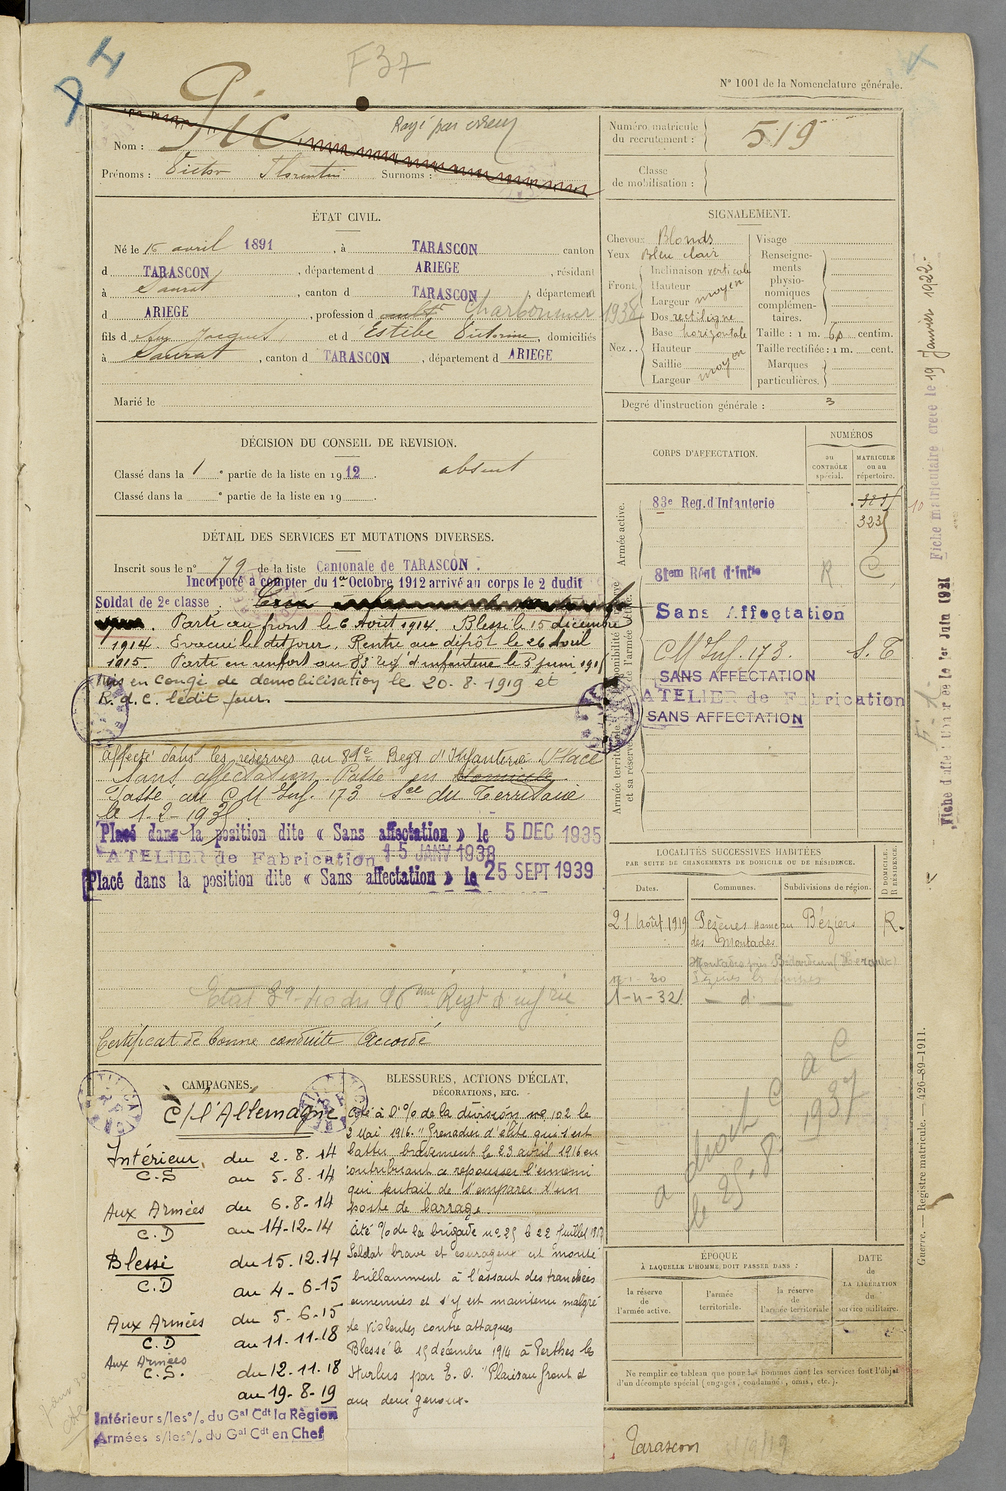 F37
N° 1001 de la Nomenclature générale.
Rayé par erreur
Nom : Pic
Prénoms : Victor Florentin Surnoms :
Numéro matricule du recrutement : 519
Classe de mobilisation :
ÉTAT CIVIL.
Né le 16 avril 1891, à TARASCON canton
d TARASCON, département d ARIEGE, résidant
à Saurat, canton d TARASCON, département
d ARIEGE, profession d cultr Charbonnier 1938
fils d Jacques et d Estèbe Victorine, domiciliés
à Saurat, canton d TARASCON, département d ARIEGE
Marié le
DÉCISION DU CONSEIL DE REVISION.
Classé dans la 1 e partie de la liste en 1912. absent
Classé dans la e partie de la liste en 19
DÉTAIL DES SERVICES ET MUTATIONS DIVERSES.
Inscrit sous le n° 79 de la liste Cantonale de TARASCON.
Incorporé à compter du 1er Octobre 1912 arrivé au corps le 2 dudit
Soldat de 2e classe
Parti au front le 6 Août 1914. Blessé le 15 décembre
1914. Evacué le dit jour. Rentré au dépôt le 26 Avril
1915. Parti en renfort au 83 reg d'infanterie le 5 juin 1915
Mis en congé de démobilisation le 20-8-1919 et
R.d.C. ledit jour
Affecté dans les réserves au 81e Regt d'Infanterie Placé
Sans affectation Passé en domicile
Passé au CM Inf. 173 Sce du Territoire
le 1-2-193
Placé dans la position dite « Sans affectation » le 5 DEC 1935
ATELIER de Fabrication 15 JANV 1938
Placé dans la position dite « Sans affectation » le 25 SEPT 1939
Certificat de bonne conduite Accordé
CAMPAGNES.
C/ l'Allemagne
Intérieur du 2.8.14
C.S au 5.8.14
Aux Armées du 6.8.14
C.D au 14-12-14
Blessé du 15.12.14
C.D au 4-6-15
Aux Armées du 5-6-15
C.D au 11-11-18
Aux Armées
C.S. du 12-11-18
au 19-8-19
Intérieur s/les % du Gal Cdt la Règion
Armées s/les % du Gal Cdt en Chef
BLESSURES, ACTIONS D'ÉCLAT,
DÉCORATIONS, ETC.
Cité à l'% de la division no 102 le
2 Mai 1916. "Grenadier d'élite qui s'est
battu bravement le 23 avril 1916 en
contribuant à repousser l'ennemi
qui tentait de s'emparer d'un
poste de barrage.
Cité % de la brigade no 25 le 22 Juillet
Soldat brave et courageux est monté
brillamment à l'assaut des tranchées
ennemies et s'y est maintenu malgré
de violentes contre attaques
Blessé le 15 décembre 1914 à Perthes les
Hurlus par E.O. "Plaies au front et
aux deux genoux.
SIGNALEMENT.
Cheveux Blonds
Yeux Bleu clair
Front Inclinaison verticale
Hauteur
Largeur moyen
Nez Dos rectiligne
Base horizontale
Hauteur
Saillie
Largeur moyen
Visage
Renseignements physionomiques complémentaires.
Taille : 1 m. 60 centim.
Taille rectifiée : 1 m. cent.
Marques particulières.
Degré d'instruction générale : 3
CORPS D'AFFECTATION.
NUMÉROS
AU CONTRÔLE spécial.
MATRICULE ou au répertoire.
Armée active.
83e Reg. d'Infanterie
323
81em Rént d'Infie R C
Sans Affectation
CM Inf. 173. S.T
SANS AFFECTATION
ATELIER de Fabrication
SANS AFFECTATION
Armée territoriale et sa réserve
LOCALITÉS SUCCESSIVES HABITÉES
PAR SUITE DE CHANGEMENTS DE DOMICILE OU DE RÉSIDENCE.
Dates. Communes. Subdivisions de région. D DOMICILE. R RÉSIDENCE.
21 Août 1919 Pézènes Hameau Béziers R.
des Montades
1-4-32 d°
a droit C a C
le 25.8.1937
ÉPOQUE
À LAQUELLE L'HOMME DOIT PASSER DANS :
la réserve de l'armée active.
l'armée territoriale.
la réserve de l'armée territoriale
DATE de LA LIBÉRATION du service militaire.
Ne remplir ce tableau que pour les hommes dont les services font l'objet
d'un décompte spécial (engagés, condamnés, omis, etc.).
Tarascon
Guerre. — Registre matricule. — 426-89-1911.
Fiche matriculaire créée le 19 Janvier 1922.